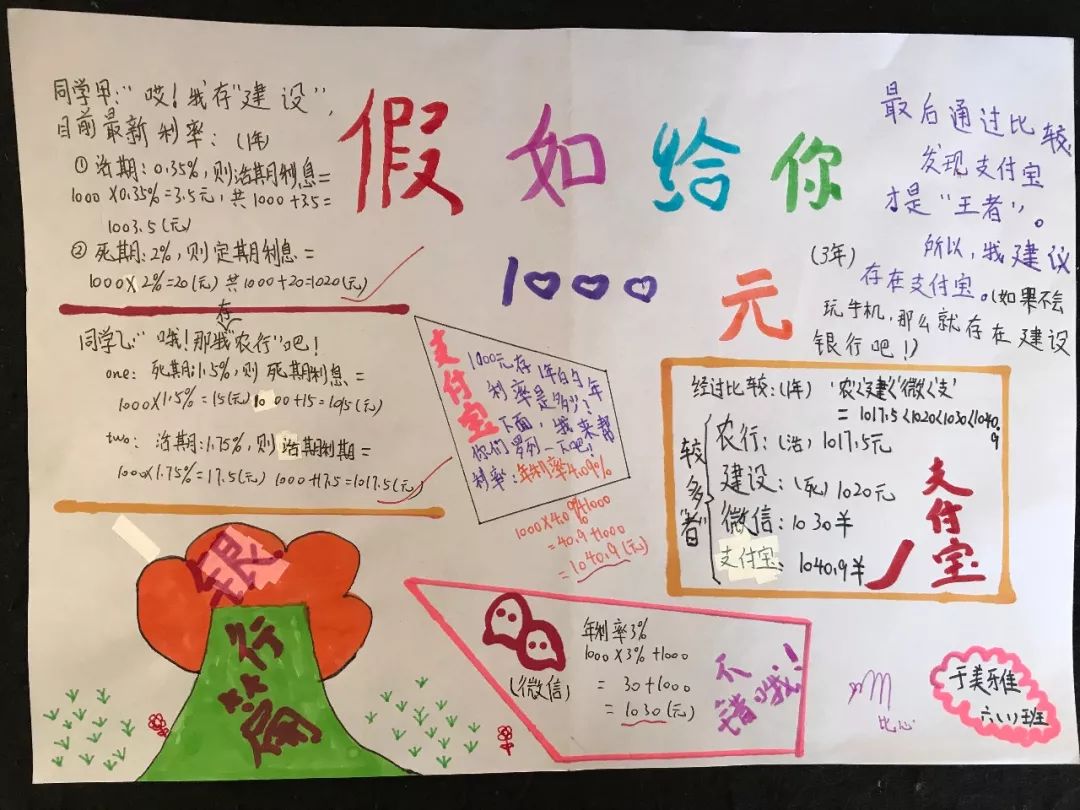 假如给你
1000元
同学甲:“哎!我存“建设”,
目前最新利率:(1年)
①活期:0.35%,则活期利息=
1000×0.35%=3.5元,共1000+3.5=
1003.5(元)
②死期:2%,则定期利息=
1000×2%=20(元)共1000+20=1020(元)
存
同学乙:“哦!那我“农行”吧!
one:死期:1.5%,则死期利息=
1000×1.5%=15(元)1000+15=1015(元)
two:活期:1.75%,则活期利期=
1000×1.75%=17.5(元) 1000+17.5=1017.5(元)
银
行
篇
支付宝
1000元存1年的年
利率是多少?
下面,我来帮
你们罗列一下吧!
利率:年利率4.09%
1000×4.09%+1000
=40.9+1000
=1040.9(元)
最后通过比较
发现支付宝
才是“王者”。
(3年)
所以,我建议
存在支付宝。(如果不会
玩手机,那么就存在建设
银行吧!)
经过比较:(1年) “农”<“建”<“微”<“支”
=1017.5<1020<1030<1040.9
较多者
农行:(活)1017.5元
建设:(死)1020元
微信:1030羊
支付宝:1040.9羊
支付宝
(微信)
年利率3%
1000×3%+1000
=30+1000
=1030(元)
不错哦!
比心
于美雅
六(1)班